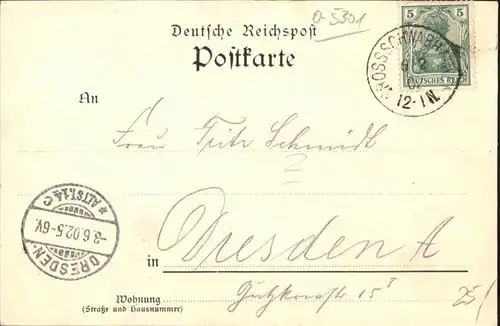 o-5301
Deutsche Reichspost
Postkarte
5 5
DEUTSCHES REICH
GROSSSCHWABHAUSEN
12-1N.
An
Frau Fritz Schmidt
DRESDEN-
-3.6.02.5-6V.
* ALTST.14 C
in Dresden A
Wohnung
(Straße und Hausnummer)
Gutzkowstr 15 I
25/